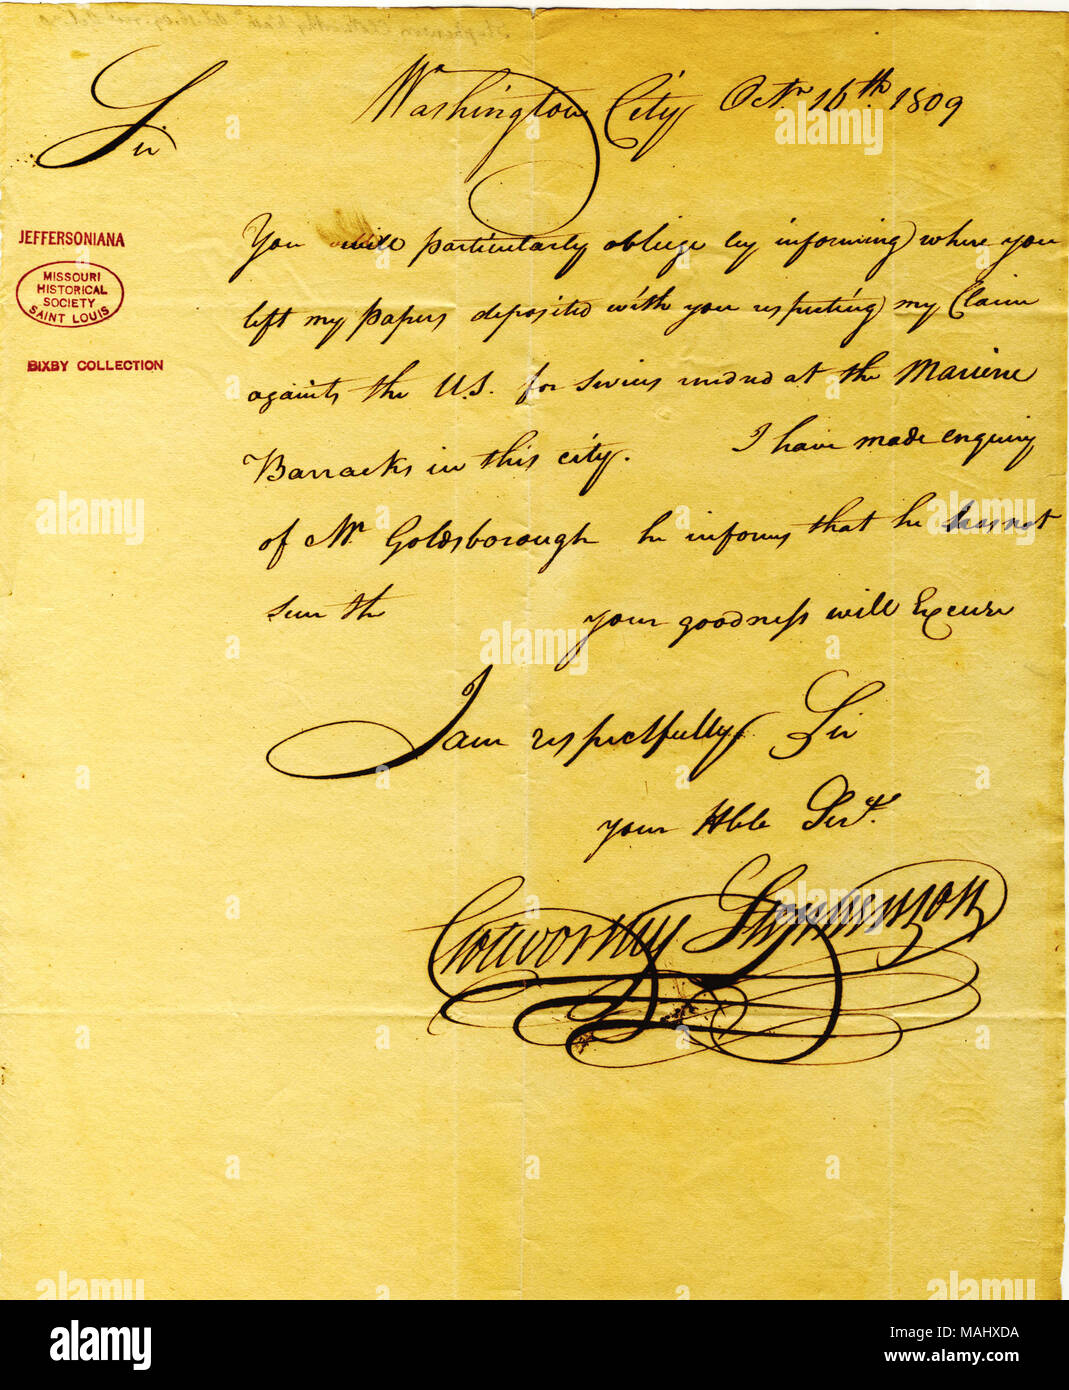 Washington City Octr 16th. 1809
Sir
You will particularly obliege by informing where you
left my papers deposited with you respecting my Claim
against the U.S. for services rendred at the Mariene
Barracks in this city. I have made enquiry
of Mr Goldsborough he informs that he has not
seen th your goodness will Excuse
I am respectfully Sir
your Hble Servt.
Clotworthy Stephenson
JEFFERSONIANA
MISSOURI
HISTORICAL
SOCIETY
SAINT LOUIS
BIXBY COLLECTION
alamy
Image ID: MAHXDA
www.alamy.com